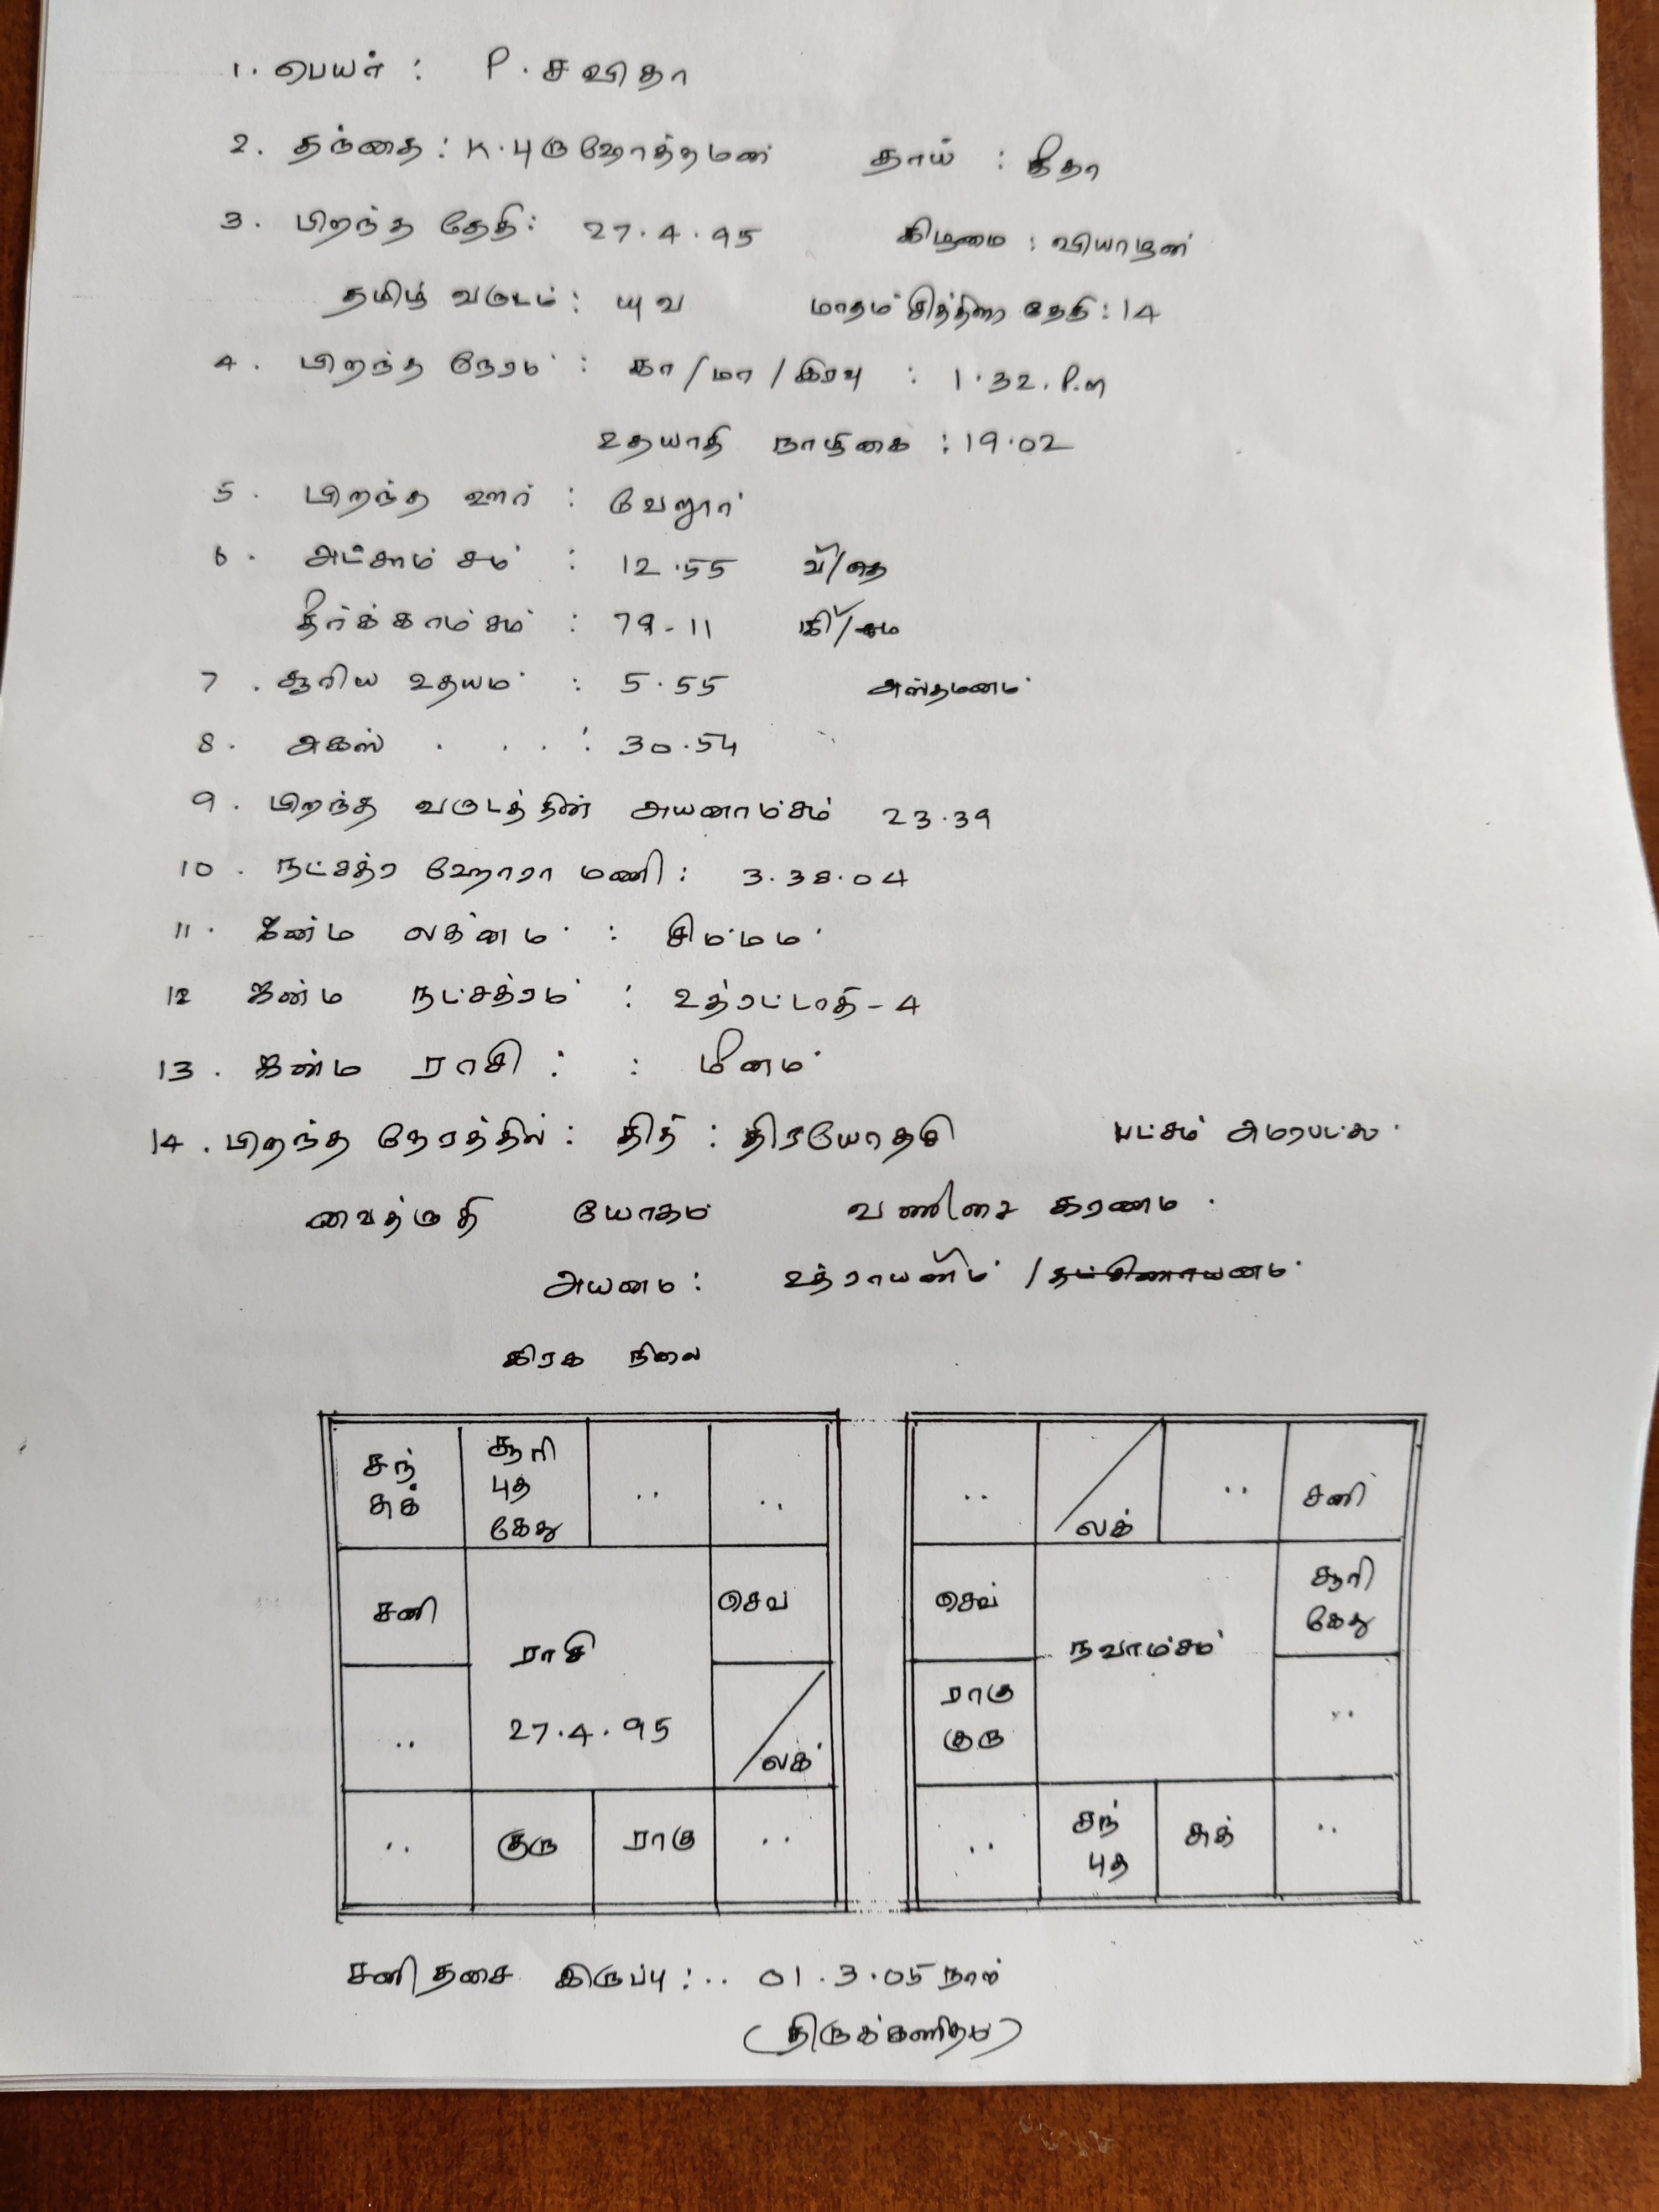 1. பெயர் : P. சவிதா
2. தந்தை : K. புருஷோத்தமன் தாய் : கீதா
3. பிறந்த தேதி : 27.4.95 கிழமை : வியாழன்
தமிழ் வருடம் : யுவ மாதம் சித்திரை தேதி : 14
4. பிறந்த நேரம் : கா / மா / இரவு : 1.32. P.m
உதயாதி நாழிகை : 19.02
5. பிறந்த ஊர் : வேலூர்
6. அட்சாம்சம் : 12.55 வ/தெ
தீர்க்காம்சம் : 79-11 கி/மே
7. சூரிய உதயம் : 5.55 அஸ்தமனம்
8. அகஸ் . . . : 30.54
9. பிறந்த வருடத்தின் அயனாம்சம் 23.39
10. நட்சத்ர ஹோரா மணி : 3.38.04
11. ஜன்ம லக்னம் : சிம்மம்
12 ஜன்ம நட்சத்ரம் : உத்ரட்டாதி - 4
13. ஜன்ம ராசி : : மீனம்
14. பிறந்த நேரத்தில் : திதி : திரயோதசி பட்சம் அமரபட்சம்
வைத்ருதி யோகம் வணிசை கரணம்.
அயனம் : உத்ராயணம் / தட்சிணாயனம்
கிரக நிலை
சந் சூரி .. ..
சுக் புத
கேது
சனி செவ்
ராசி
27.4.95
.. லக்
.. குரு ராகு ..
.. லக் .. சனி
செவ் சூரி
கேது
நவாம்சம்
ராகு ..
குரு
.. சந் சுக் ..
புத
சனி தசை இருப்பு : .. 01.3.05 நாள்
(திருக்கணிதம்)